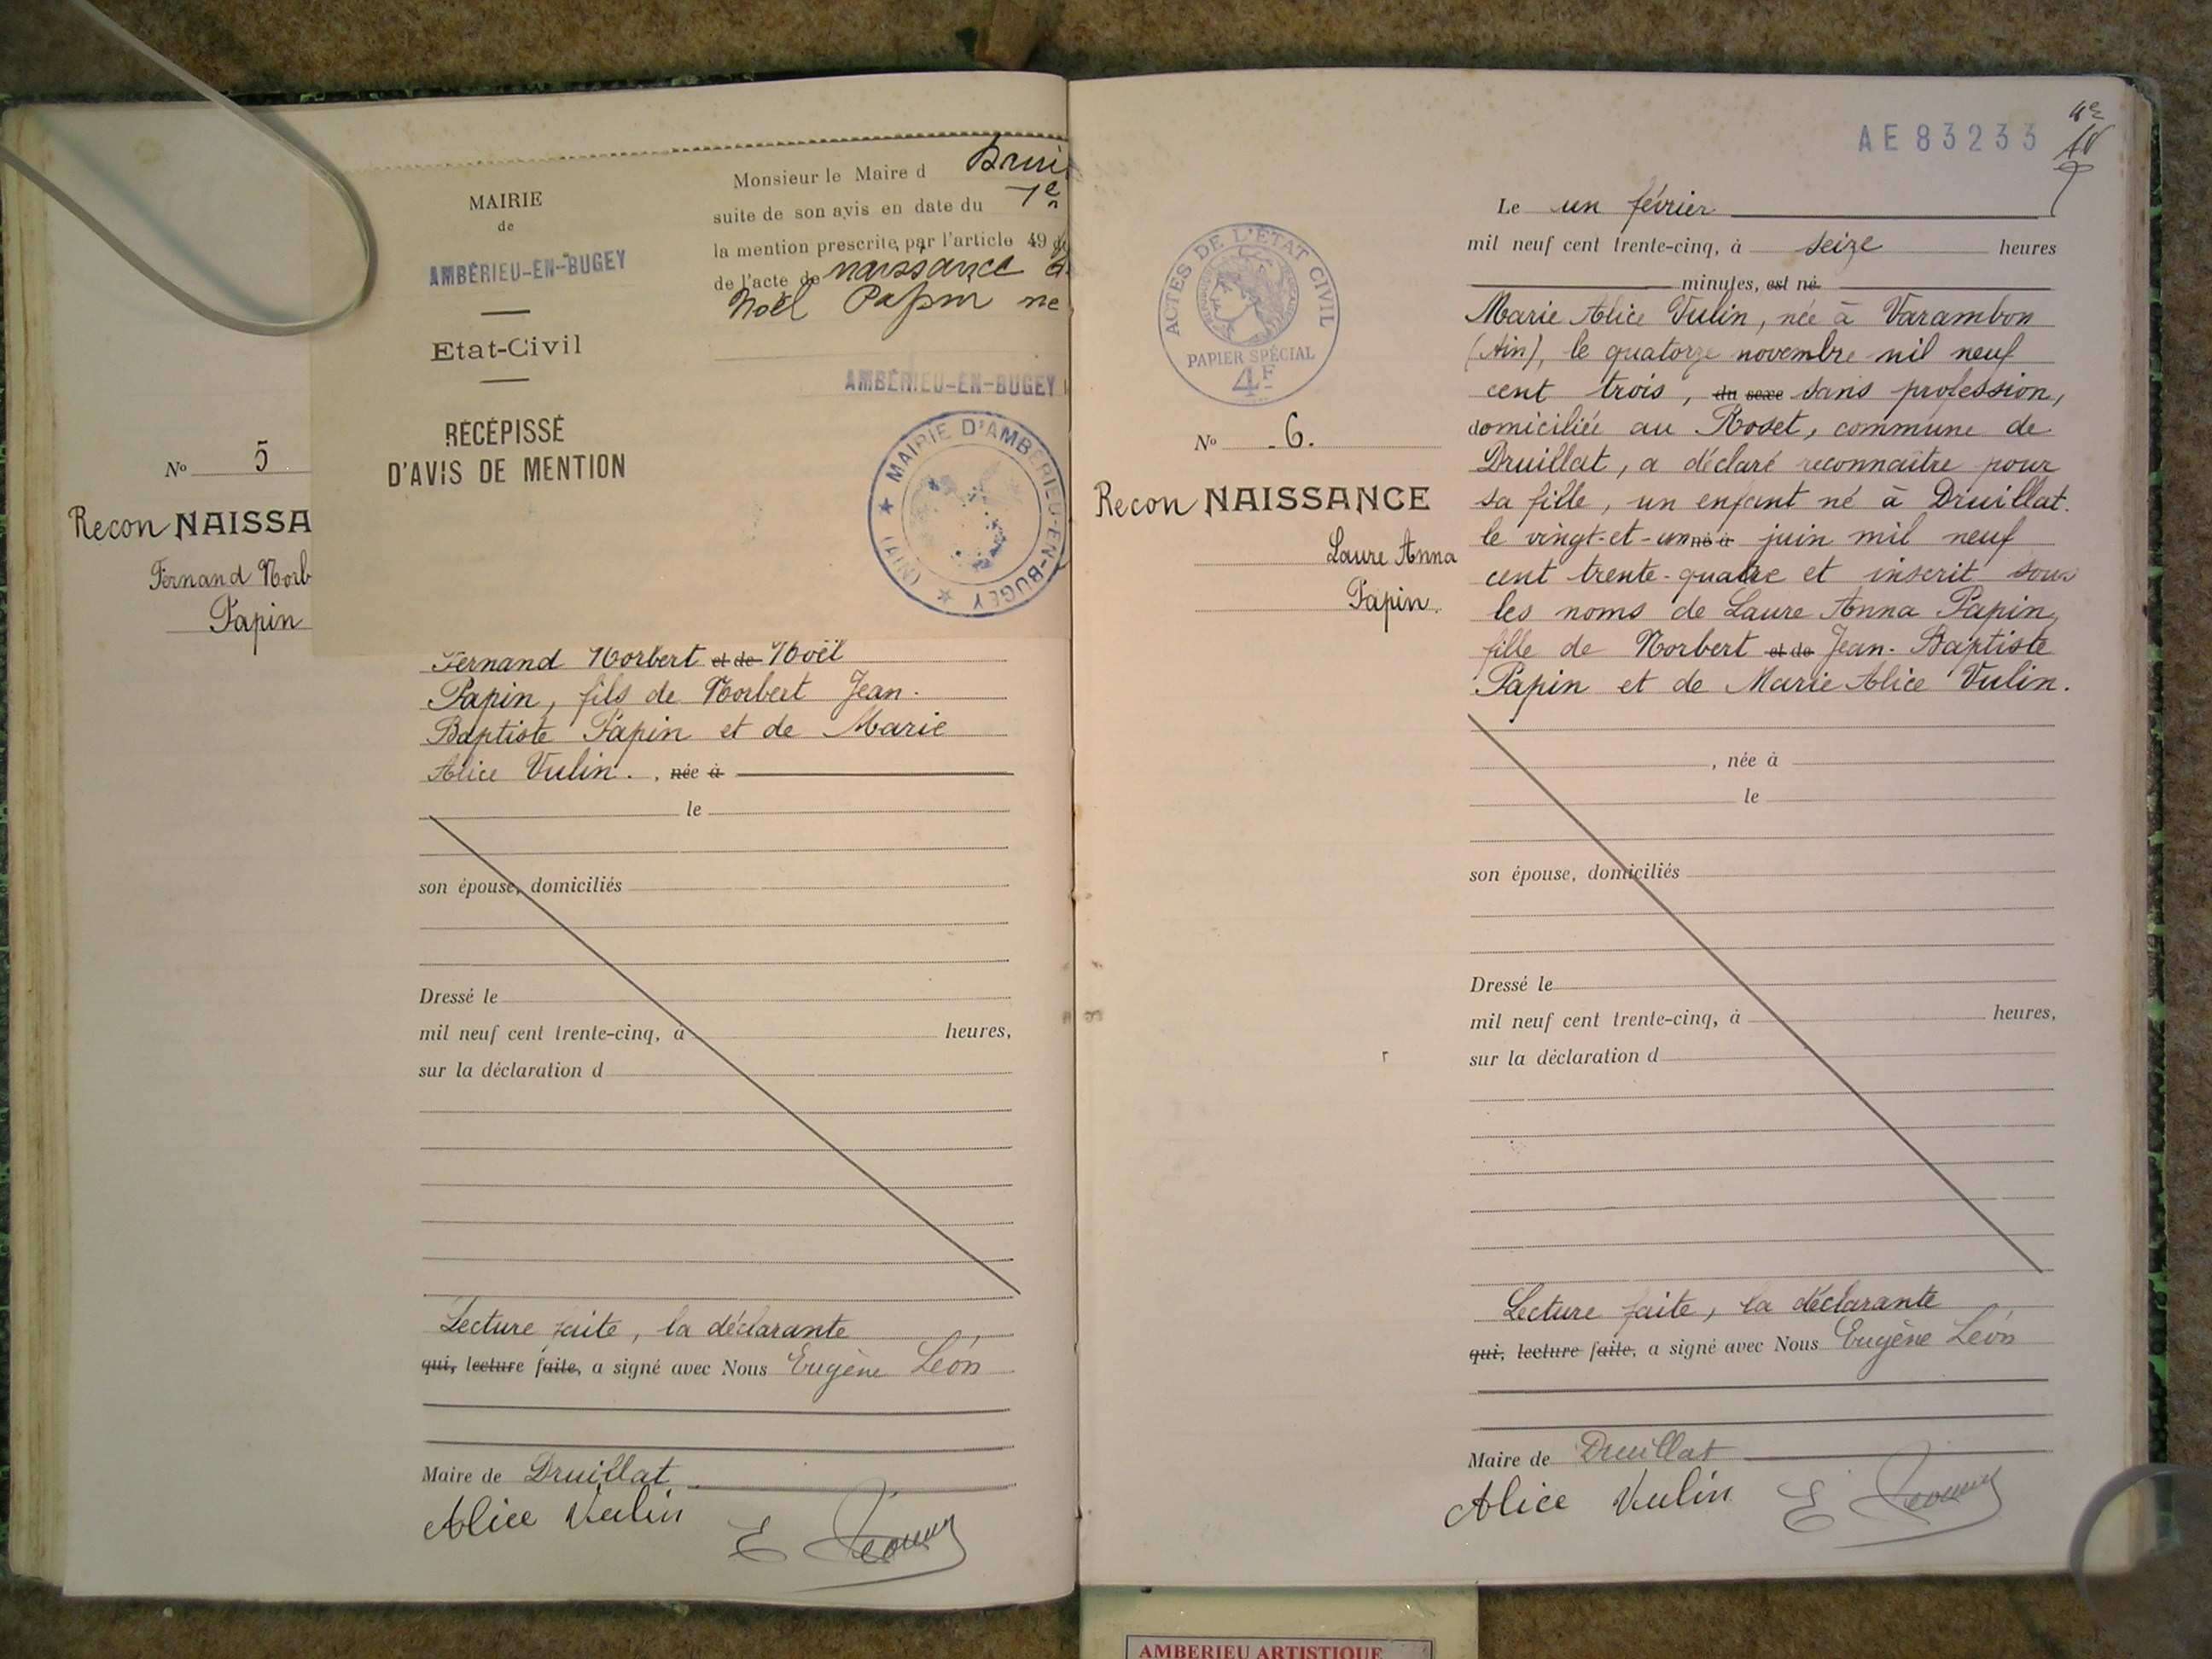 MAIRIE
de
AMBÉRIEU-EN-BUGEY
Etat-Civil
RÉCÉPISSÉ
D'AVIS DE MENTION
Monsieur le Maire d Drui
suite de son avis en date du 7
la mention prescrite par l'article 49 d
de l'acte de naissance d
Noël Papin ne
AMBÉRIEU-EN-BUGEY
★ MAIRIE D'AMBÉRIEU-EN-BUGEY ★ (AIN)
No 5
Recon NAISSA
Fernand Norb
Papin
Fernand Norbert et de Noël
Papin, fils de Norbert Jean-
Baptiste Papin et de Marie
Alice Vulin. , née à
le
son épouse, domiciliés
Dressé le
mil neuf cent trente-cinq, à heures,
sur la déclaration d
Lecture faite, la déclarante
qui, lecture faite, a signé avec Nous Eugène Léon
Maire de Druillat
Alice Vulin E
AE83233
ACTES DE L'ÉTAT CIVIL
PAPIER SPÉCIAL
4F
No 6.
Recon NAISSANCE
Laure Anna
Papin.
Le un février
mil neuf cent trente-cinq, à seize heures
minutes, est né
Marie Alice Vulin, née à Varambon
(Ain), le quatorze novembre mil neuf
cent trois, du sexe sans profession,
domiciliée au Roset, commune de
Druillat, a déclaré reconnaître pour
sa fille, un enfant né à Druillat.
le vingt-et-un né à juin mil neuf
cent trente-quatre et inscrit sous
les noms de Laure Anna Papin,
fille de Norbert et de Jean-Baptiste
Papin et de Marie Alice Vulin.
, née à
le
son épouse, domiciliés
Dressé le
mil neuf cent trente-cinq, à heures,
sur la déclaration d
Lecture faite, la déclarante
qui, lecture faite, a signé avec Nous Eugène Léon
Maire de Druillat
Alice Vulin E
AMBERIEU ARTISTIQUE